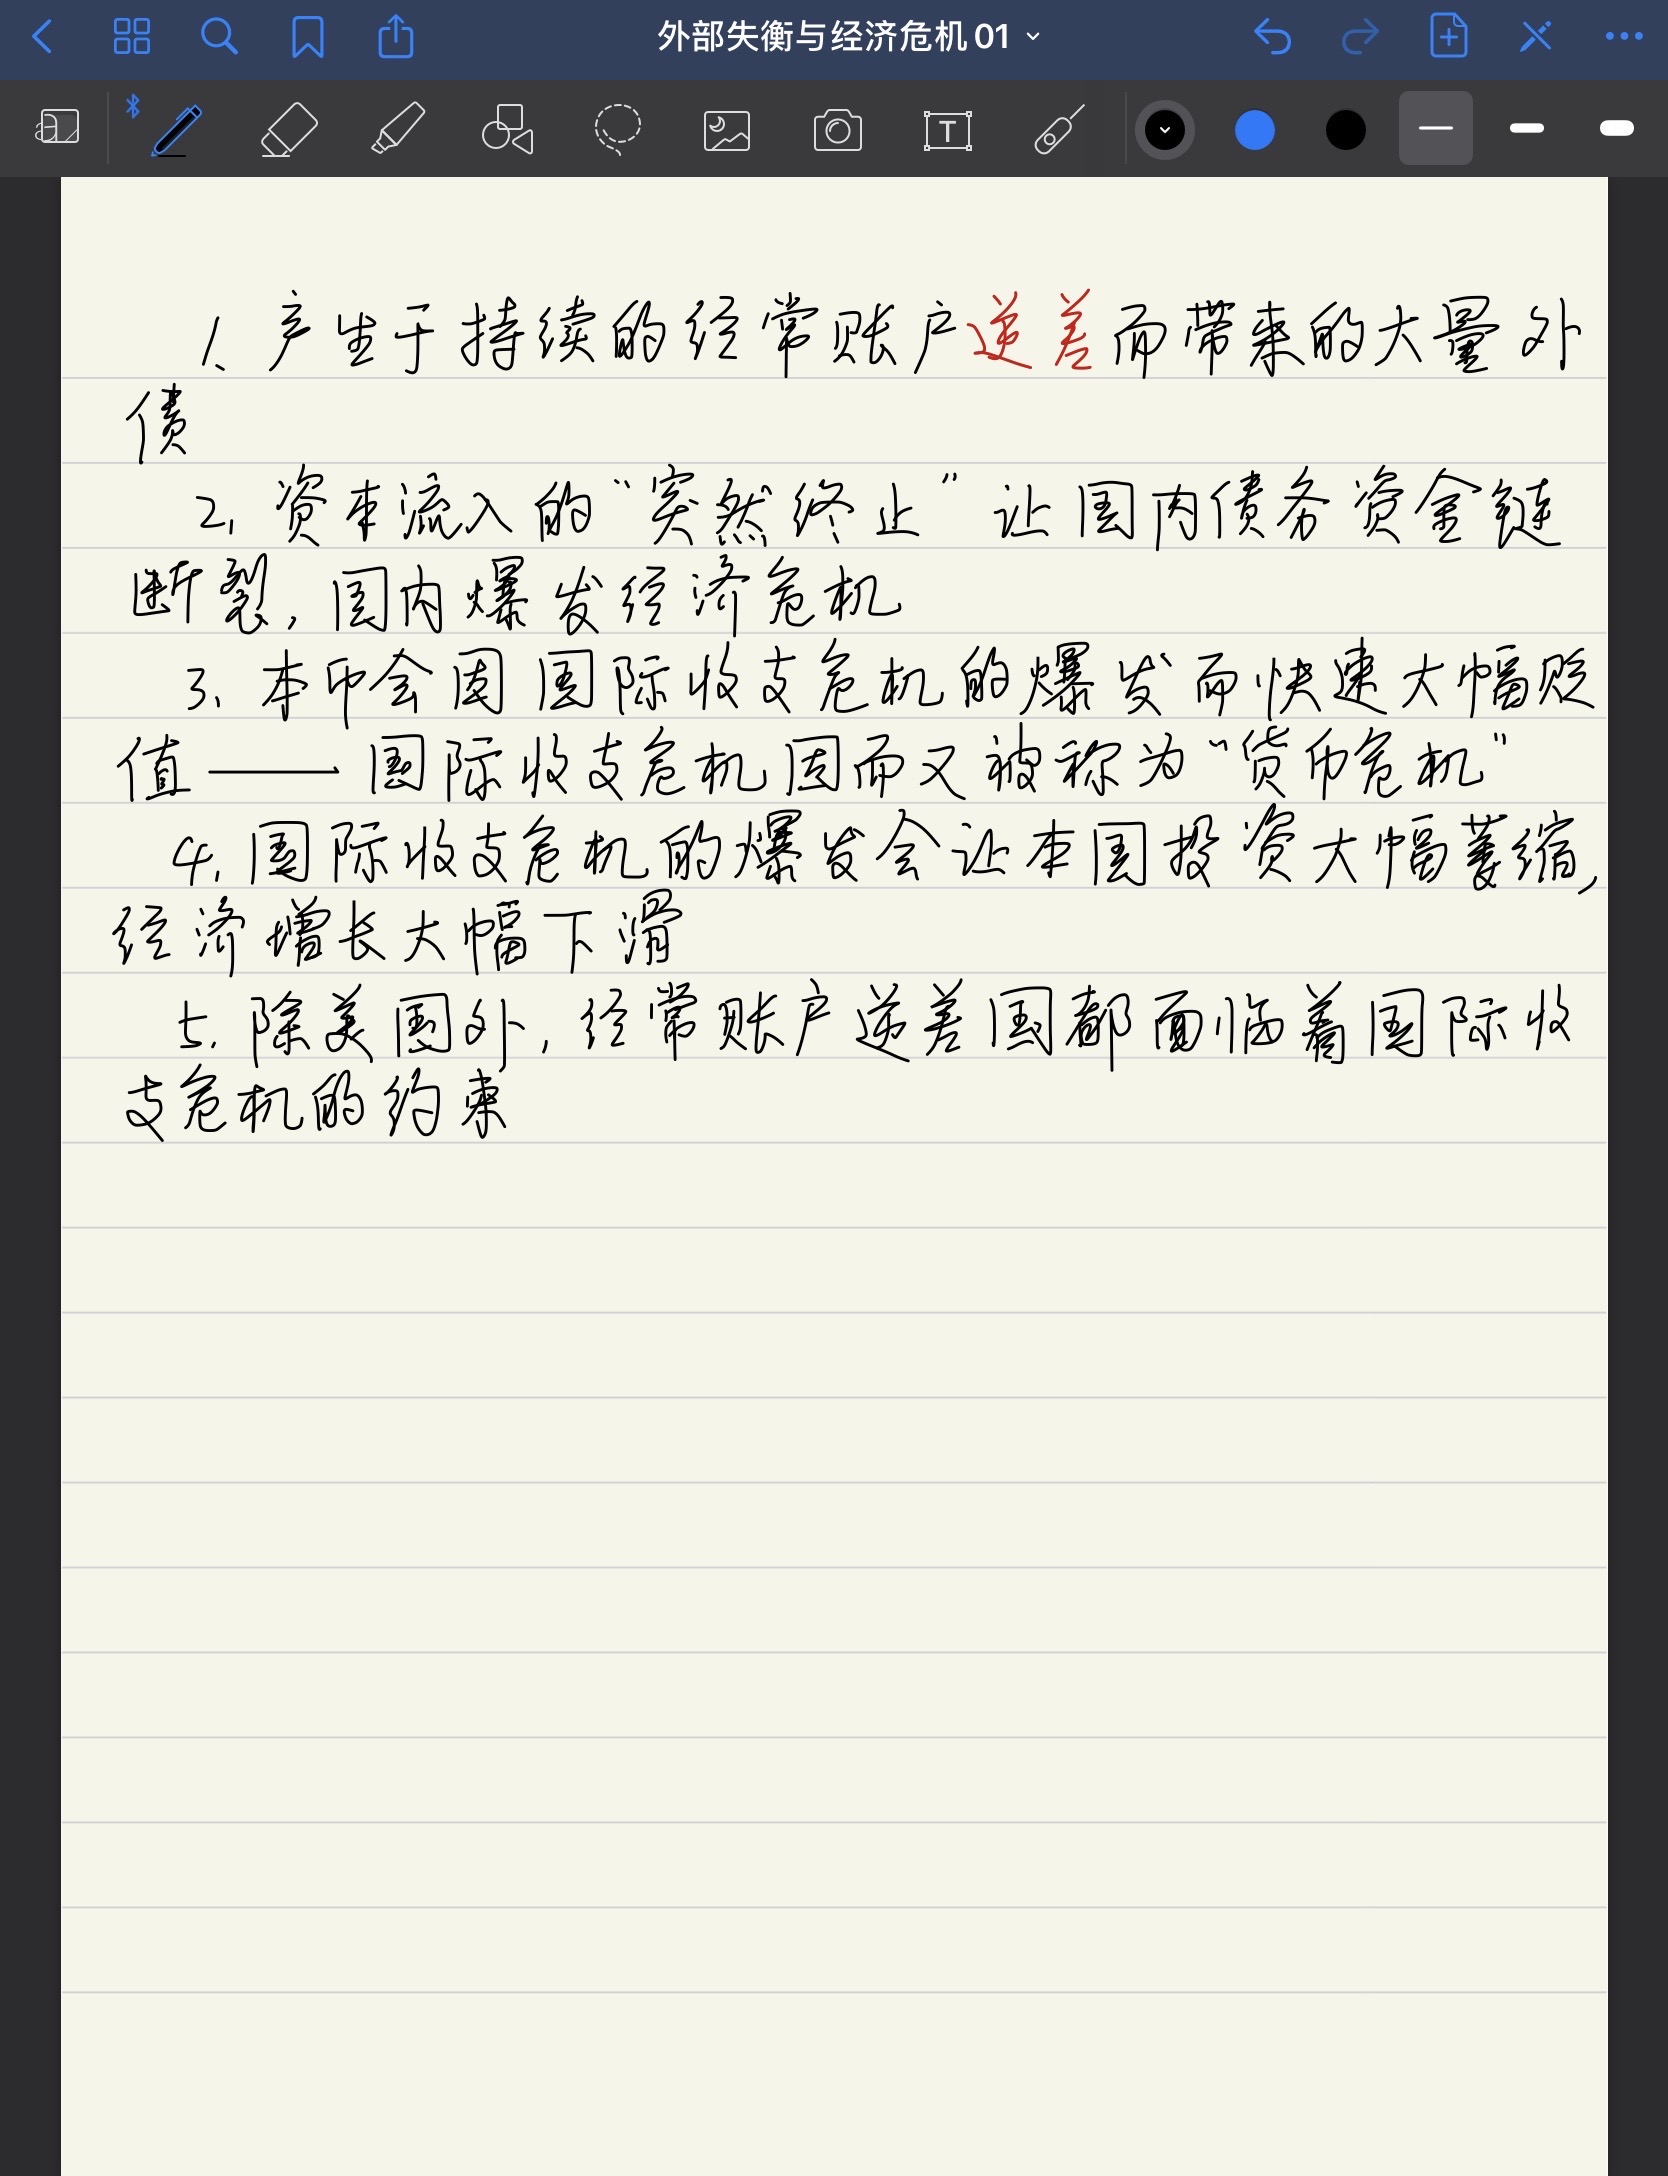 外部失衡与经济危机 01
T
1. 产生于持续的经常账户逆差而带来的大量外
债
2. 资本流入的“突然终止”让国内债务资金链
断裂,国内爆发经济危机
3. 本币会因国际收支危机的爆发而快速大幅贬
值——国际收支危机因而又被称为“货币危机”
4. 国际收支危机的爆发会让本国投资大幅萎缩,
经济增长大幅下滑
5. 除美国外,经常账户逆差国都面临着国际收
支危机的约束